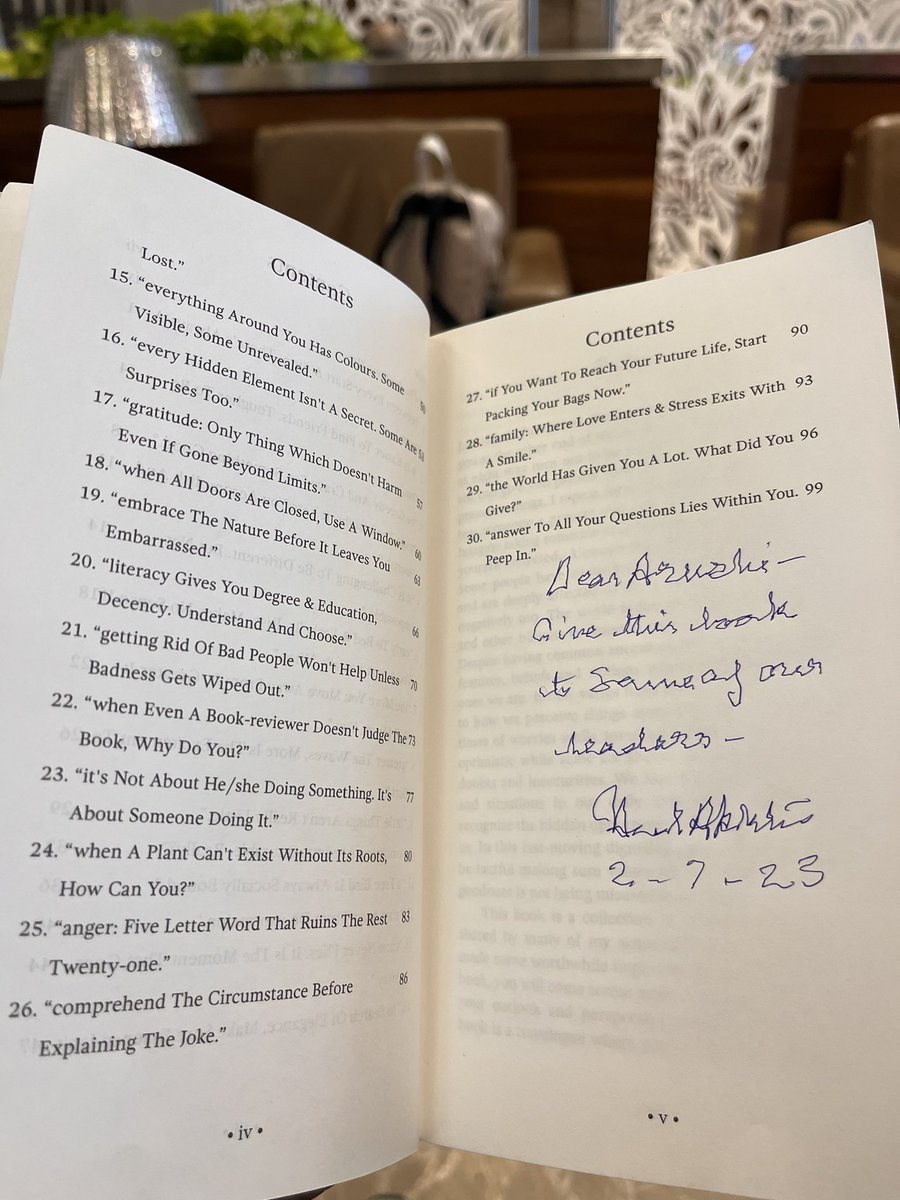 Contents
Lost.”
15. “everything Around You Has Colours. Some
Visible, Some Unrevealed.” 50
16. “every Hidden Element Isn't A Secret. Some Are
Surprises Too.”
17. “gratitude: Only Thing Which Doesn't Harm
Even If Gone Beyond Limits.” 57
18. “when All Doors Are Closed, Use A Window.” 60
19. “embrace The Nature Before It Leaves You
Embarrassed.” 63
20. “literacy Gives You Degree & Education,
Decency. Understand And Choose.” 66
21. “getting Rid Of Bad People Won't Help Unless
Badness Gets Wiped Out.” 70
22. “when Even A Book-reviewer Doesn't Judge The 73
Book, Why Do You?”
23. “it's Not About He/she Doing Something. It's 77
About Someone Doing It.”
24. “when A Plant Can't Exist Without Its Roots, 80
How Can You?”
25. “anger: Five Letter Word That Ruins The Rest 83
Twenty-one.”
26. “comprehend The Circumstance Before 86
Explaining The Joke.”
• iv •
Contents
27. “if You Want To Reach Your Future Life, Start 90
Packing Your Bags Now.”
28. “family: Where Love Enters & Stress Exits With 93
A Smile.”
29. “the World Has Given You A Lot. What Did You 96
Give?”
30. “answer To All Your Questions Lies Within You. 99
Peep In.”
Dear
Give this book
to Some of our
readers –
2 - 7 - 23
• v •